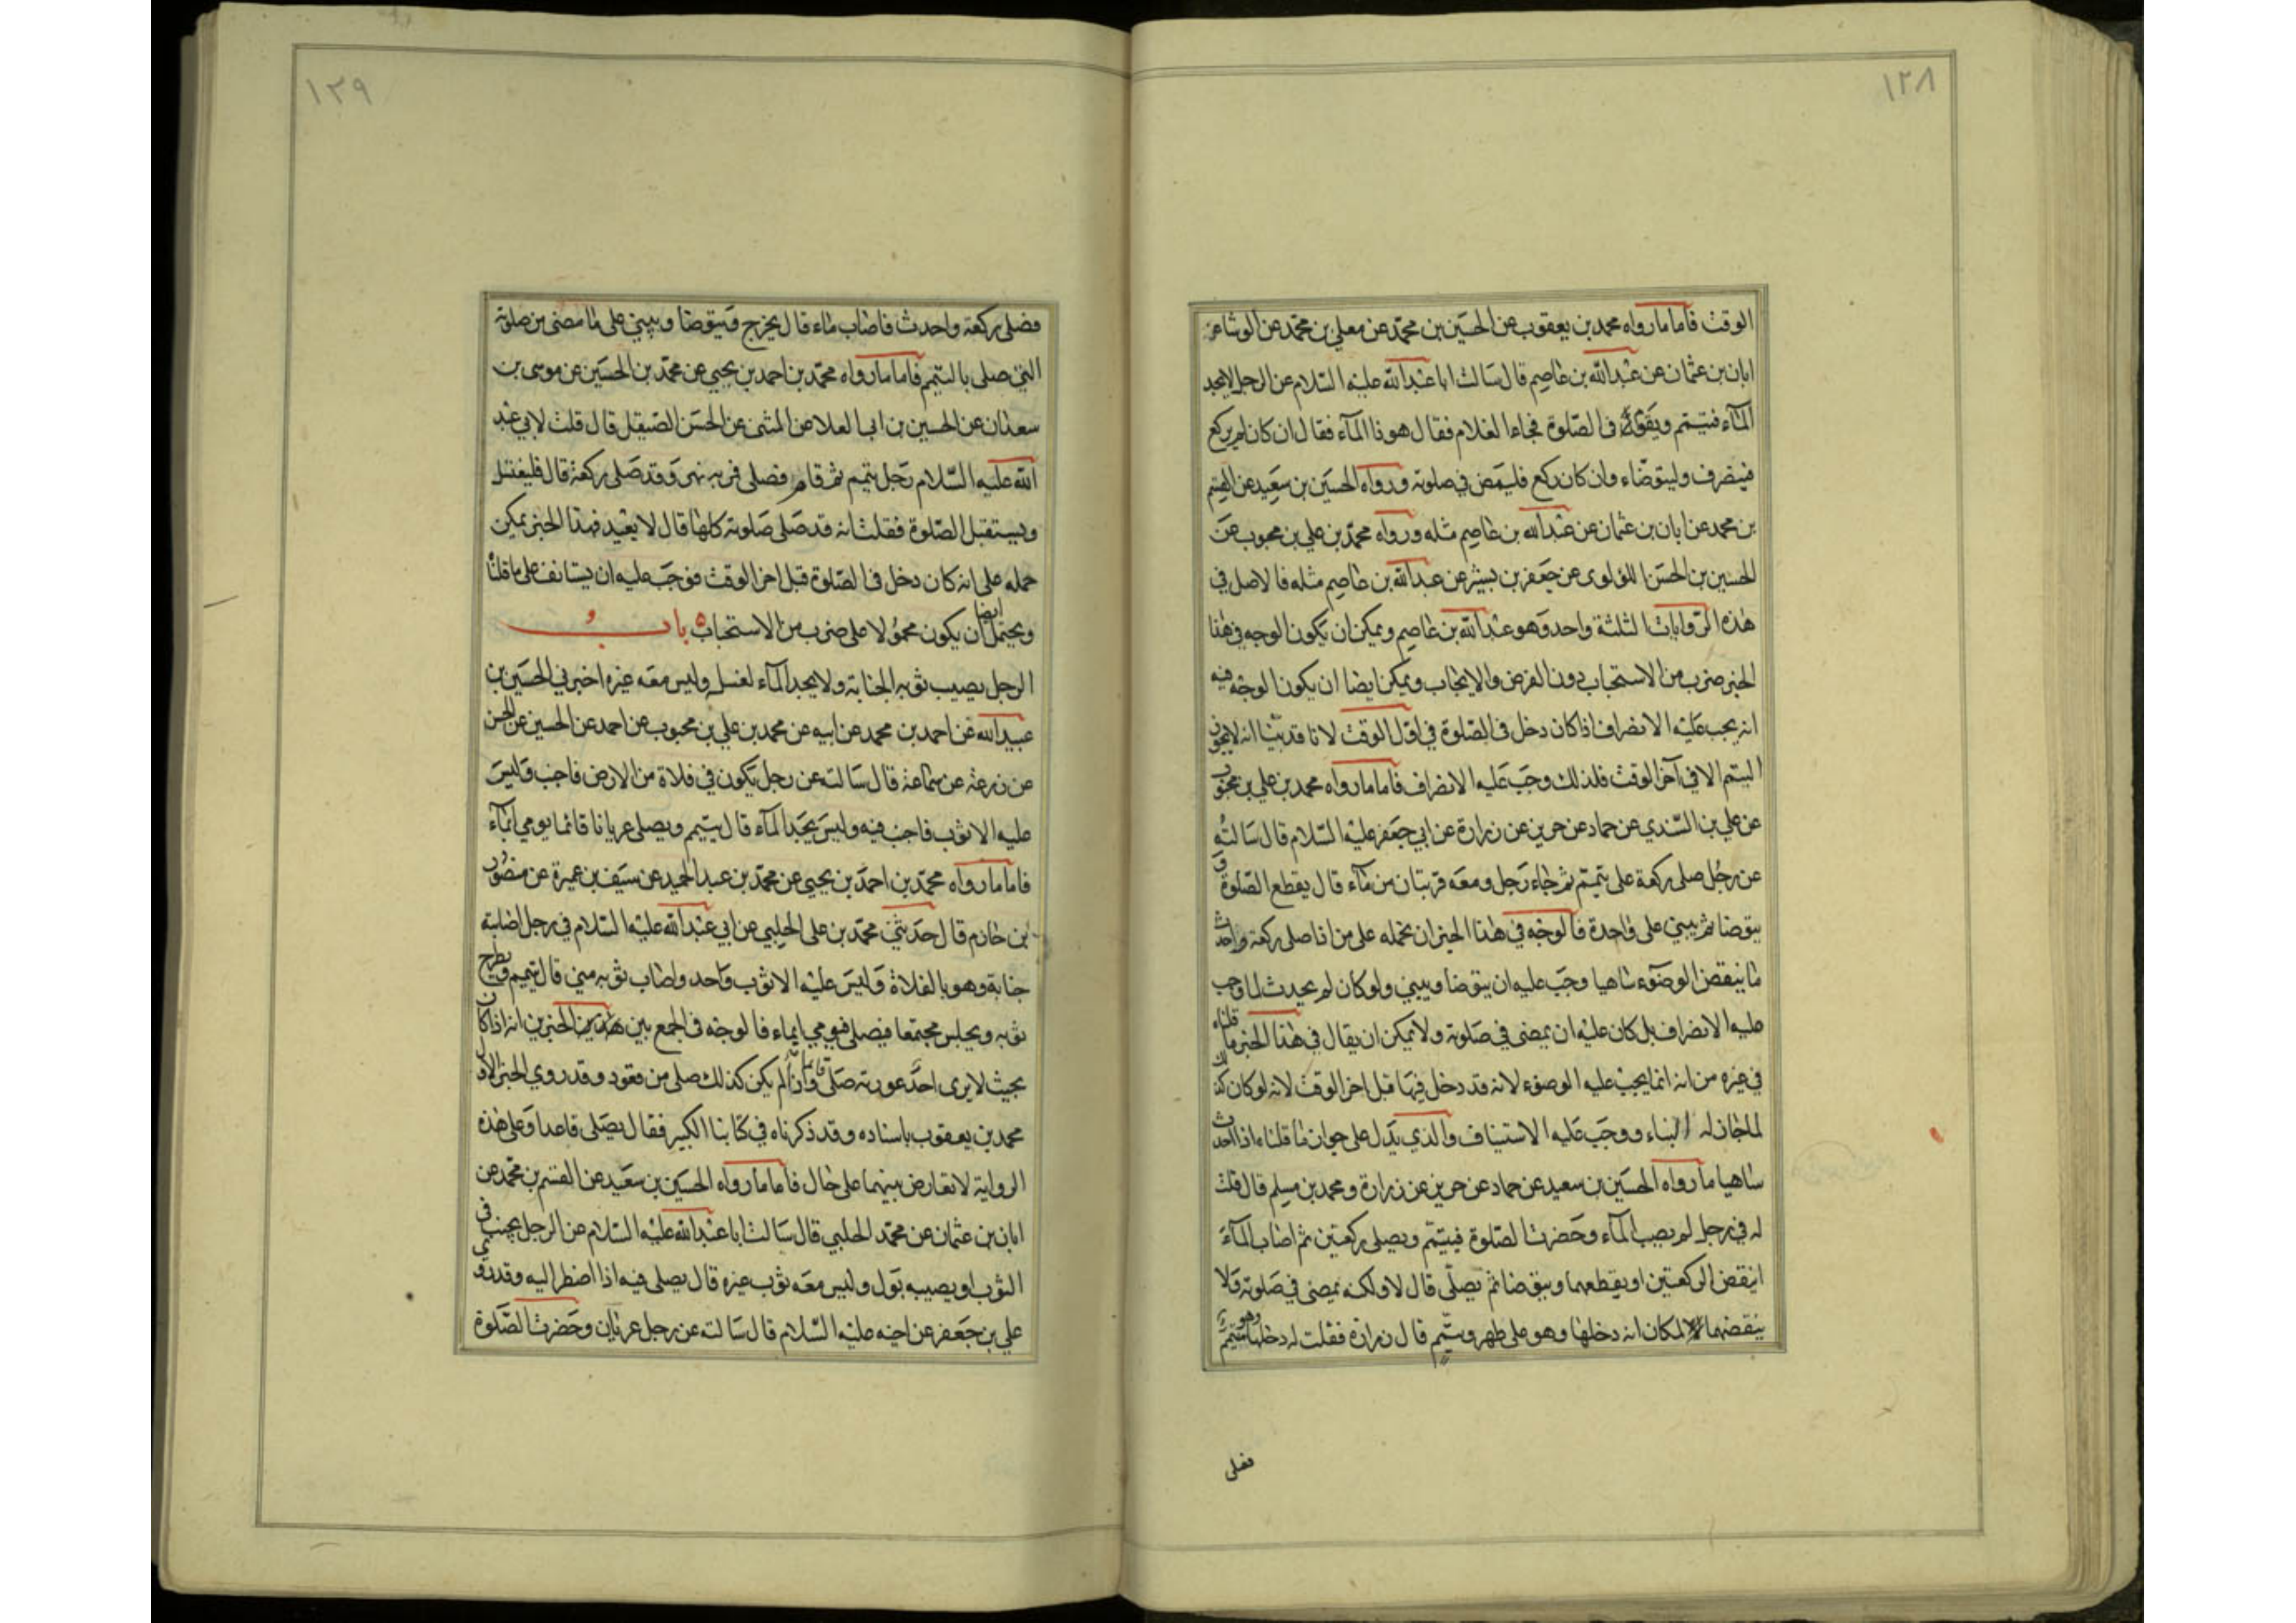 ١٢٨
الوقت فاما ما رواه محمد بن يعقوب عن الحسين بن محمد عن معلى بن محمد عن الوشا عن
ابان بن عثمان عن عبد الله بن عاصم قال سالت ابا عبد الله عليه السلام عن الرجل لا يجد
المآء فتيتمم ويقوم في الصلوة فجاء الغلام فقال هوذا المآء فقال ان كان لم يركع
فينصرف وليتوضاء وان كان ركع فليمض في صلوته ورواه الحسين بن سعيد عن القسم
بن محمد عن ابان بن عثمان عن عبد الله بن عاصم مثله ورواه محمد بن علي بن محبوب عن
الحسين بن الحسن اللؤلوى عن جعفر بن بشير عن عبد الله بن عاصم مثله فالاصل في
هذه الروايات الثلثة واحد وهو عبد الله بن عاصم ويمكن ان يكون الوجه في هذا
الخبر ضرب من الاستحباب دون الفرض والايجاب ويمكن ايضا ان يكون الوجه فيه
انه يجب عليه الانصراف اذا كان دخل في الصلوة في اول الوقت لانا قد بينا انه لا يجوز
التيمم الا في آخر الوقت فلذلك وجب عليه الانصراف فاما ما رواه محمد بن علي بن محبوب
عن علي بن السندي عن حماد عن حريز عن زرارة عن ابي جعفر عليه السلام قال سالته
عن رجل صلى ركعة على تيمم ثم جاء رجل ومعه قربتان من مآء قال يقطع الصلوة و
يتوضا ثم يبني على واحدة فالوجه في هذا الخبر ان نحمله على من اذا صلى ركعة واحدث
ما ينقض الوضوء ساهيا وجب عليه ان يتوضا ويبني ولو كان لم يحدث لما وجب
عليه الانصراف بل كان عليه ان يمضى في صلوته ولا يمكن ان يقال في هذا الخبر ما قلناه
في غيره من انه انما يجب عليه الوضوء لانه قد دخل فيها قبل اخر الوقت لانه لو كان كذلك
لما جاز له البناء ووجب عليه الاستيناف والذي يدل على جواز ما قلناه اذا احدث
ساهيا ما رواه الحسين بن سعيد عن حماد عن حريز عن زرارة ومحمد بن مسلم قال قلت
له في رجل لم يصب المآء وحضرت الصلوة فيتيمم ويصلى ركعتين ثم اصاب المآء
اينقض الركعتين او يقطعهما ويتوضا ثم يصلي قال لا ولكنه يمضى في صلوته ولا
ينقضهما لمكان انه دخلها وهو على طهر وتيمم قال زرارة فقلت له دخلها وهو متيمم
فصلى
١٢٩
فصلى ركعة واحدث فاصاب ماء قال يخرج فيتوضا ويبني على ما مضى من صلوته
التي صلى بالتيمم فاما ما رواه محمد بن احمد بن يحيى عن محمد بن الحسين عن موسى بن
سعدان عن الحسين بن ابي العلا عن المثنى عن الحسن الصيقل قال قلت لابي عبد
الله عليه السلام رجل تيمم ثم قام فصلى فمر به نهر وقد صلى ركعة قال فليغتسل
ويستقبل الصلوة فقلت انه قد صلى صلوته كلها قال لا يعيد فهذا الخبر يمكن
حمله على انه كان دخل في الصلوة قبل اخر الوقت فوجب عليه ان يستانف على ما قلناه
ويحتمل ايضا ان يكون محمولا على ضرب من الاستحباب باب
الرجل يصيب ثوبه الجنابة ولا يجد المآء لغسله وليس معه غيره اخبرني الحسين بن
عبيد الله عن احمد بن محمد عن ابيه عن محمد بن علي بن محبوب عن احمد عن الحسين عن الحسن
عن زرعة عن سماعة قال سالته عن رجل يكون في فلاة من الارض فاجنب وليس
عليه الا ثوب فاجنب فيه وليس يجد المآء قال يتيمم ويصلى عريانا قائما يومي ايمآء
فاما ما رواه محمد بن احمد بن يحيى عن محمد بن عبد الحميد عن سيف بن عميرة عن منصور
بن حازم قال حدثني محمد بن على الحلبي عن ابي عبد الله عليه السلام في رجل اصابته
جنابة وهو بالفلاة وليس عليه الا ثوب واحد واصاب ثوبه مني قال يتيمم ويطرح
ثوبه ويجلس مجتمعا فيصلى فيومي ايماء فالوجه في الجمع بين هذين الخبرين انه اذا كان
بحيث لا يرى احد عورته صلى قائما وان لم يكن كذلك صلى من قعود وقد روى الخبر الاول
محمد بن يعقوب باسناده وقد ذكرناه في كتابنا الكبير فقال يصلى قاعدا وعلى هذه
الرواية لا تعارض بينهما على حال فاما ما رواه الحسين بن سعيد عن القسم بن محمد عن
ابان بن عثمان عن محمد الحلبي قال سالت ابا عبد الله عليه السلام عن الرجل يجنب في
الثوب او يصيبه بول وليس معه ثوب غيره قال يصلى فيه اذا اضطر اليه وقد روى
علي بن جعفر عن اخيه عليه السلام قال سالته عن رجل عريان وحضرت الصلوة